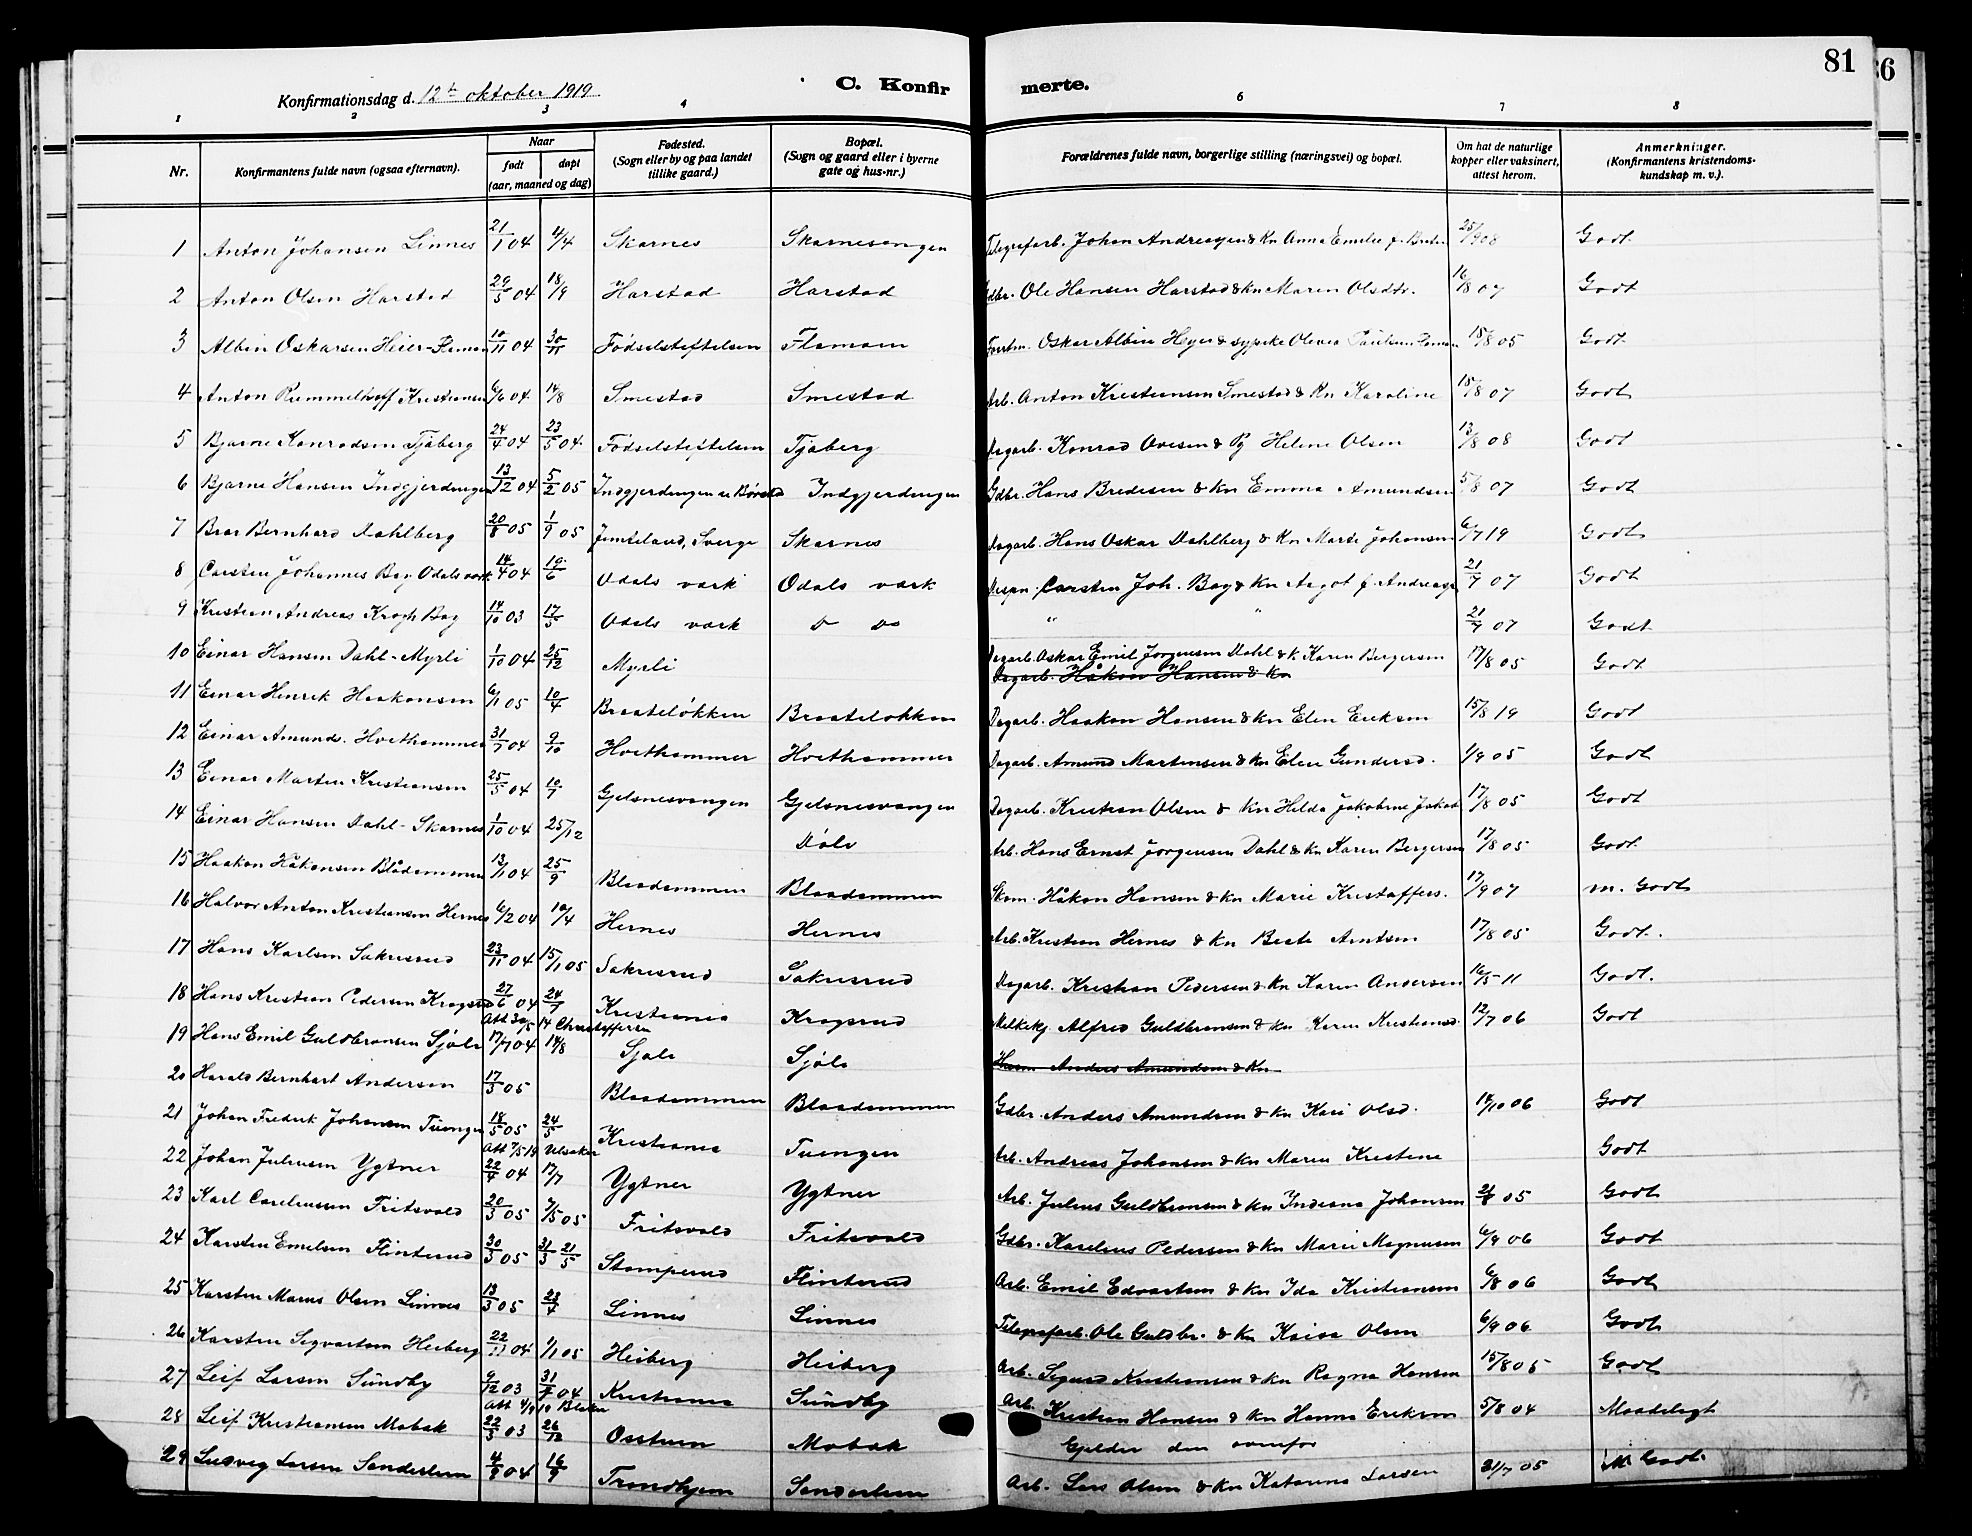 81
Konfirmationsdag d. 12te oktober 1919
C. Konfir merte.
1 2 3 4 5 6 7 8
Nr. Konfirmantens fulde navn (ogsaa efternavn). Naar født døpt (aar, maaned og dag) Fødested. (Sogn eller by og paa landet tillike gaard.) Bopæl. (Sogn og gaard eller i byerne gate og hus-nr.) Forældrenes fulde navn, borgerlige stilling (næringsvei) og bopæl. Om hat de naturlige kopper eller vaksinert, attest herom. Anmerkninger. (Konfirmantens kristendomskundskap m. v.).
1 Anton Johansen Linnes 21/1 04 4/4 Skarnes Skarnesengen Telegrafarb. Johan Andreassen & Kn Anna Emilie 25/9 08 Godt
2 Anton Olsen Harstad 29/5 04 18/9 Harstad Harstad Gdbr. Ole Hansen Harstad & kn Maren Olsdtr. 16/8 07 Godt
3 Albin Oskarsen Heier- 10/11 04 30/11 Fødselsstiftelsen Flamoen Oskar Albin Heyer & sypike Olivia 15/8 05 Godt
4 Anton Rummelhoff Kristiansen 6/6 04 14/8 Smestad Smestad Arb. Anton Kristiansen Smestad & Kn Karoline 15/8 07 Godt
5 Bjarne Konradsen Tjaberg 24/4 04 23/5 04 Fødselsstiftelsen Tjaberg Dagarb. Konrad Ovesen & Pg Helene Olsen 13/8 08 Godt
6 Bjarne Hansen Indgjerdingen 13/12 04 5/2 05 Indgjerdingen Indgjerdingen Gdbr. Hans Bredesen & kn Emma Amundsen 5/8 07 Godt
7 Bror Bernhard Dahlberg 20/8 05 1/9 05 Jemteland, Sverge Skarnes Dagarb. Hans Oskar Dahlberg & Kn Marte Johansen 6/7 19 Godt
8 Carsten Johannes Bay Odals værk 14/4 04 19/6 Odals værk Odals værk Carsten Joh. Bay & Kn Aagot f. 21/7 07 Godt
9 Kristian Andreas Krogh Bay 14/10 03 17/5 Odals værk Do Do " " 21/7 07 Godt
10 Einar Hansen Dahl-Myrli 1/10 04 25/12 Myrli Dagarb. Oskar Emil Jørgensen Dahl & k. Karen Bergersen 17/8 05 Godt
Dagarb. Håkon Hansen & Kn
11 Einar Henrik Haakonsen 6/1 05 10/4 Braateløkken Braateløkken Dagarb. Haakon Hansen & kn Elen Eriksen 15/8 19 Godt
12 Einar Amunds. Hvethammer 31/7 04 9/10 Hvethammer Hvethammer Dagarb. Amund Martinsen & kn Elen Gundersd. 1/9 05 Godt
13 Einar Martin Kristiansen 25/5 04 10/7 Gjelsnesvangen Gjelsnesvangen Dagarb. Kristian Olsen & kn Hilda Jakobine 17/8 05 Godt
14 Einar Hansen Dahl-Skarnes 1/10 04 25/12 Døli Arb. Hans Ernst Jørgensen Dahl & kn Karen Bergersen 17/8 05 Godt
15 Haakon Håkonsen Blådammen 13/11 04 25/9 Blaadammen Blaadammen Skom. Håkon Hansen & kn Marie Kristoffers. 17/9 07 m. Godt
16 Halvor Anton Kristiansen Hernes 6/2 04 10/4 Hernes Hernes Arb. Kristian Hernes & kn Beate Arntsen 17/8 05 Godt.
17 Hans Karlsen Sakrisrud 23/11 04 15/1 05 Sakrisrud Sakrisrud Dagarb. Kristian Pedersen & kn Karen Andersen 16/5 11 Godt.
18 Hans Kristian Pedersen Krogsrud 27/6 04 24/7 Kristiania Krogsrud Alfred Guldbransen & kn Karen Kristiansd. 12/7 06 Godt
Att 30/5 14 Christoffersen
19 Hans Emil Guldbransen Sjøli 17/7 04 14/8 Sjøli Sjøli Anders Amundsen & kn
20 Harald Bernhart Andersen 17/3 05 Blaadammen Blaadammen Gdbr. Anders Amundsen & kn Kari Olsd. 14/10 06 Godt
21 Johan Fredrik Johansen Tuengen 18/5 05 24/5 Kristiania Tuengen Arb. Andreas Johansen & kn Maren Kristine Godt
22 Johan Juliussen Ygtner 22/4 04 17/7 Ygtner Ygtner Arb. Julius Guldbransen & kn Indiana Johansen 21/8 05 Godt
23 Karl Careliussen Fritsvold 20/3 05 7/5 05 Fritsvold Fritsvold Gdbr. Karelius Pedersen & Kn Marie Magnusen 6/9 06 Godt
24 Karsten Emilsen Flinterud 30/3 05 31/3 21/5 Stomperud Flinterud Arb. Emil Edvartsen & kn Ida Kristiansen 6/8 06 Godt
25 Karsten Marius Olsen Linnes 13/3 05 23/4 Linnes Linnes Telegrafarb. Ole Guldbr. & kn Kaisa Olsen 6/9 06 Godt
26 Karsten Sigvartsen Heiberg 22/11 04 1/1 05 Heiberg Heiberg Arb. Sigvard Kristiansen & kn Ragna Hansen 15/8 05 Godt
27 Leif Larsen Sundby 9/12 03 31/7 04 Kristiania Sundby Arb. Kristian Hansen & kn Hanna Eriksen 5/8 04 Maadeligt
28 Leif Kristiansen Mobak 22/3 03 26/12 Mobak Gjelder den ovenfor
29 Ludvig Larsen Sanderlien 4/8 04 16/9 Trondhjem Sanderlien Arb. Lars Olsen & kn Katarina Larsen 31/7 05 M Godt.